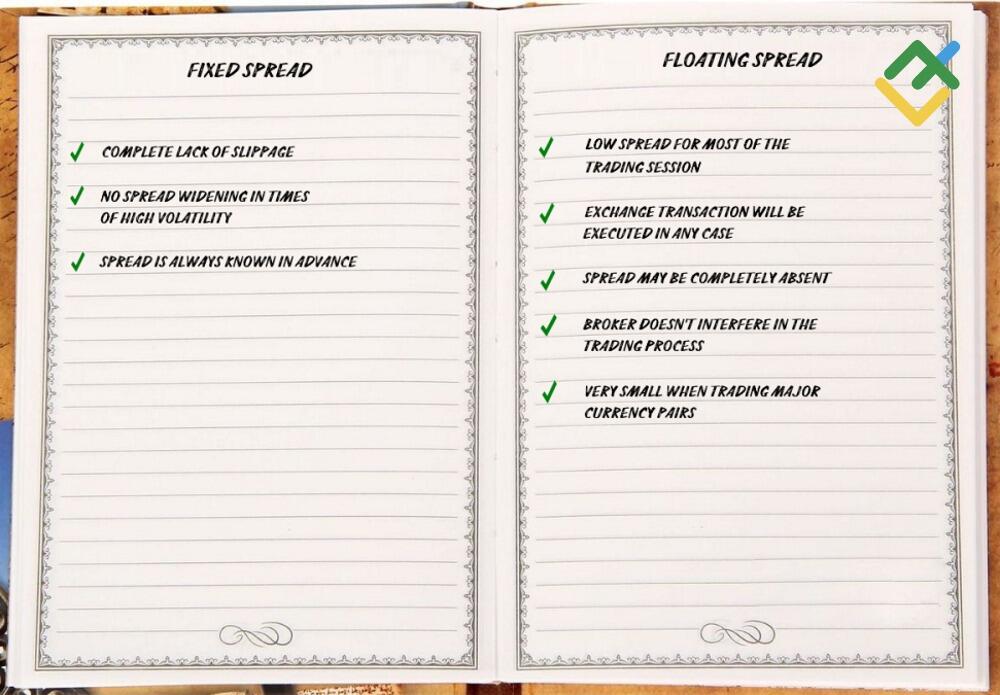 FIXED SPREAD
COMPLETE LACK OF SLIPPAGE
NO SPREAD WIDENING IN TIMES
OF HIGH VOLATILITY
SPREAD IS ALWAYS KNOWN IN ADVANCE
FLOATING SPREAD
LOW SPREAD FOR MOST OF THE
TRADING SESSION
EXCHANGE TRANSACTION WILL BE
EXECUTED IN ANY CASE
SPREAD MAY BE COMPLETELY ABSENT
BROKER DOESN'T INTERFERE IN THE
TRADING PROCESS
VERY SMALL WHEN TRADING MAJOR
CURRENCY PAIRS